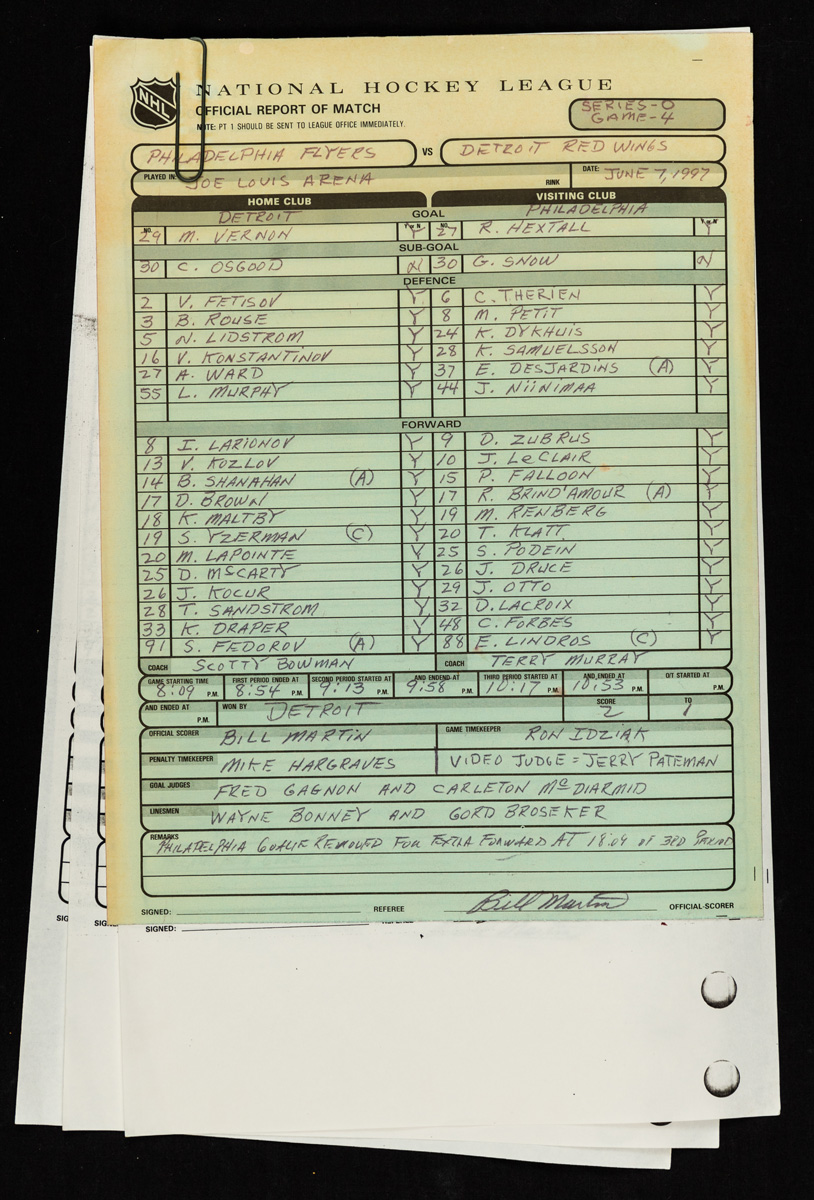 NHL
NATIONAL HOCKEY LEAGUE
OFFICIAL REPORT OF MATCH
NOTE: PT 1 SHOULD BE SENT TO LEAGUE OFFICE IMMEDIATELY.
SERIES-O
GAME-4
PHILADELPHIA FLYERS VS DETROIT RED WINGS
PLAYED IN: JOE LOUIS ARENA RINK DATE: JUNE 7, 1997
HOME CLUB VISITING CLUB
DETROIT GOAL PHILADELPHIA
NO. Y or N NO. Y or N
29 M. VERNON Y 27 R. HEXTALL Y
SUB-GOAL
30 C. OSGOOD N 30 G. SNOW N
DEFENCE
2 V. FETISOV Y 6 C. THERIEN Y
3 B. ROUSE Y 8 M. PETIT Y
5 N. LIDSTROM Y 24 K. DYKHUIS Y
16 V. KONSTANTINOV Y 28 K. SAMUELSSON Y
27 A. WARD Y 37 E. DESJARDINS (A) Y
55 L. MURPHY Y 44 J. NIINIMAA Y
FORWARD
8 I. LARIONOV Y 9 D. ZUBRUS Y
13 V. KOZLOV Y 10 J. LECLAIR Y
14 B. SHANAHAN (A) Y 15 P. FALLOON Y
17 D. BROWN Y 17 R. BRIND'AMOUR (A) Y
18 K. MALTBY Y 19 M. RENBERG Y
19 S. YZERMAN (C) Y 20 T. KLATT Y
20 M. LAPOINTE Y 25 S. PODEIN Y
25 D. McCARTY Y 26 J. DRUCE Y
26 J. KOCUR Y 29 J. OTTO Y
28 T. SANDSTROM Y 32 D. LACROIX Y
33 K. DRAPER Y 48 C. FORBES Y
91 S. FEDOROV (A) Y 88 E. LINDROS (C) Y
COACH SCOTTY BOWMAN COACH TERRY MURRAY
GAME STARTING TIME FIRST PERIOD ENDED AT SECOND PERIOD STARTED AT AND ENDED AT THIRD PERIOD STARTED AT AND ENDED AT O/T STARTED AT
8:09 P.M. 8:54 P.M. 9:13 P.M. 9:58 P.M. 10:17 P.M. 10:53 P.M. P.M.
AND ENDED AT P.M. WON BY DETROIT SCORE 2 TO 1
OFFICIAL SCORER BILL MARTIN GAME TIMEKEEPER RON IDZIAK
PENALTY TIMEKEEPER MIKE HARGRAVES VIDEO JUDGE = JERRY PATEMAN
GOAL JUDGES FRED GAGNON AND CARLETON McDIARMID
LINESMEN WAYNE BONNEY AND GORD BROSEKER
REMARKS
PHILADELPHIA GOALIE REMOVED FOR EXTRA FORWARD AT 18:04 OF 3RD PERIOD
SIGNED: REFEREE Bill Martin OFFICIAL-SCORER
SIGNED: